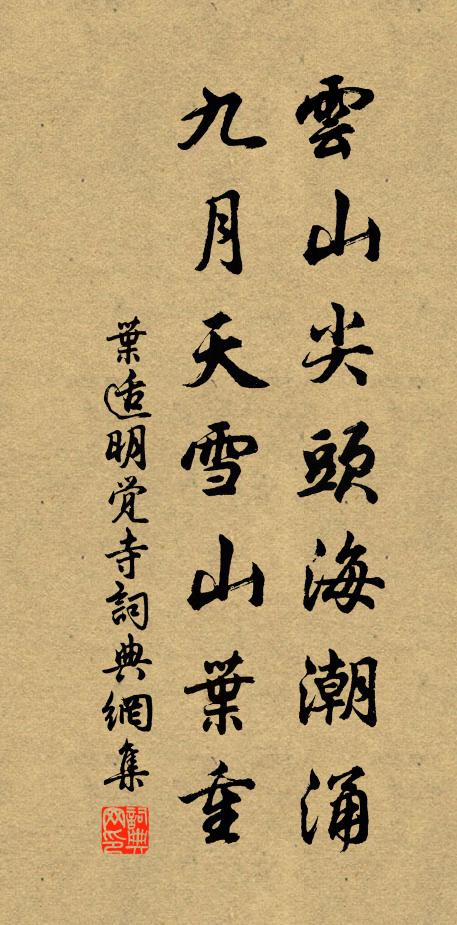 雲山尖頭海潮涌
九月天雪山葉重
葉适明覚寺詞典網集
詞典網印